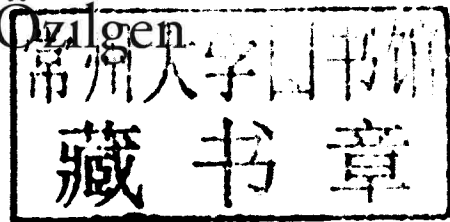 Özilgen
常州大学图书馆
藏书章